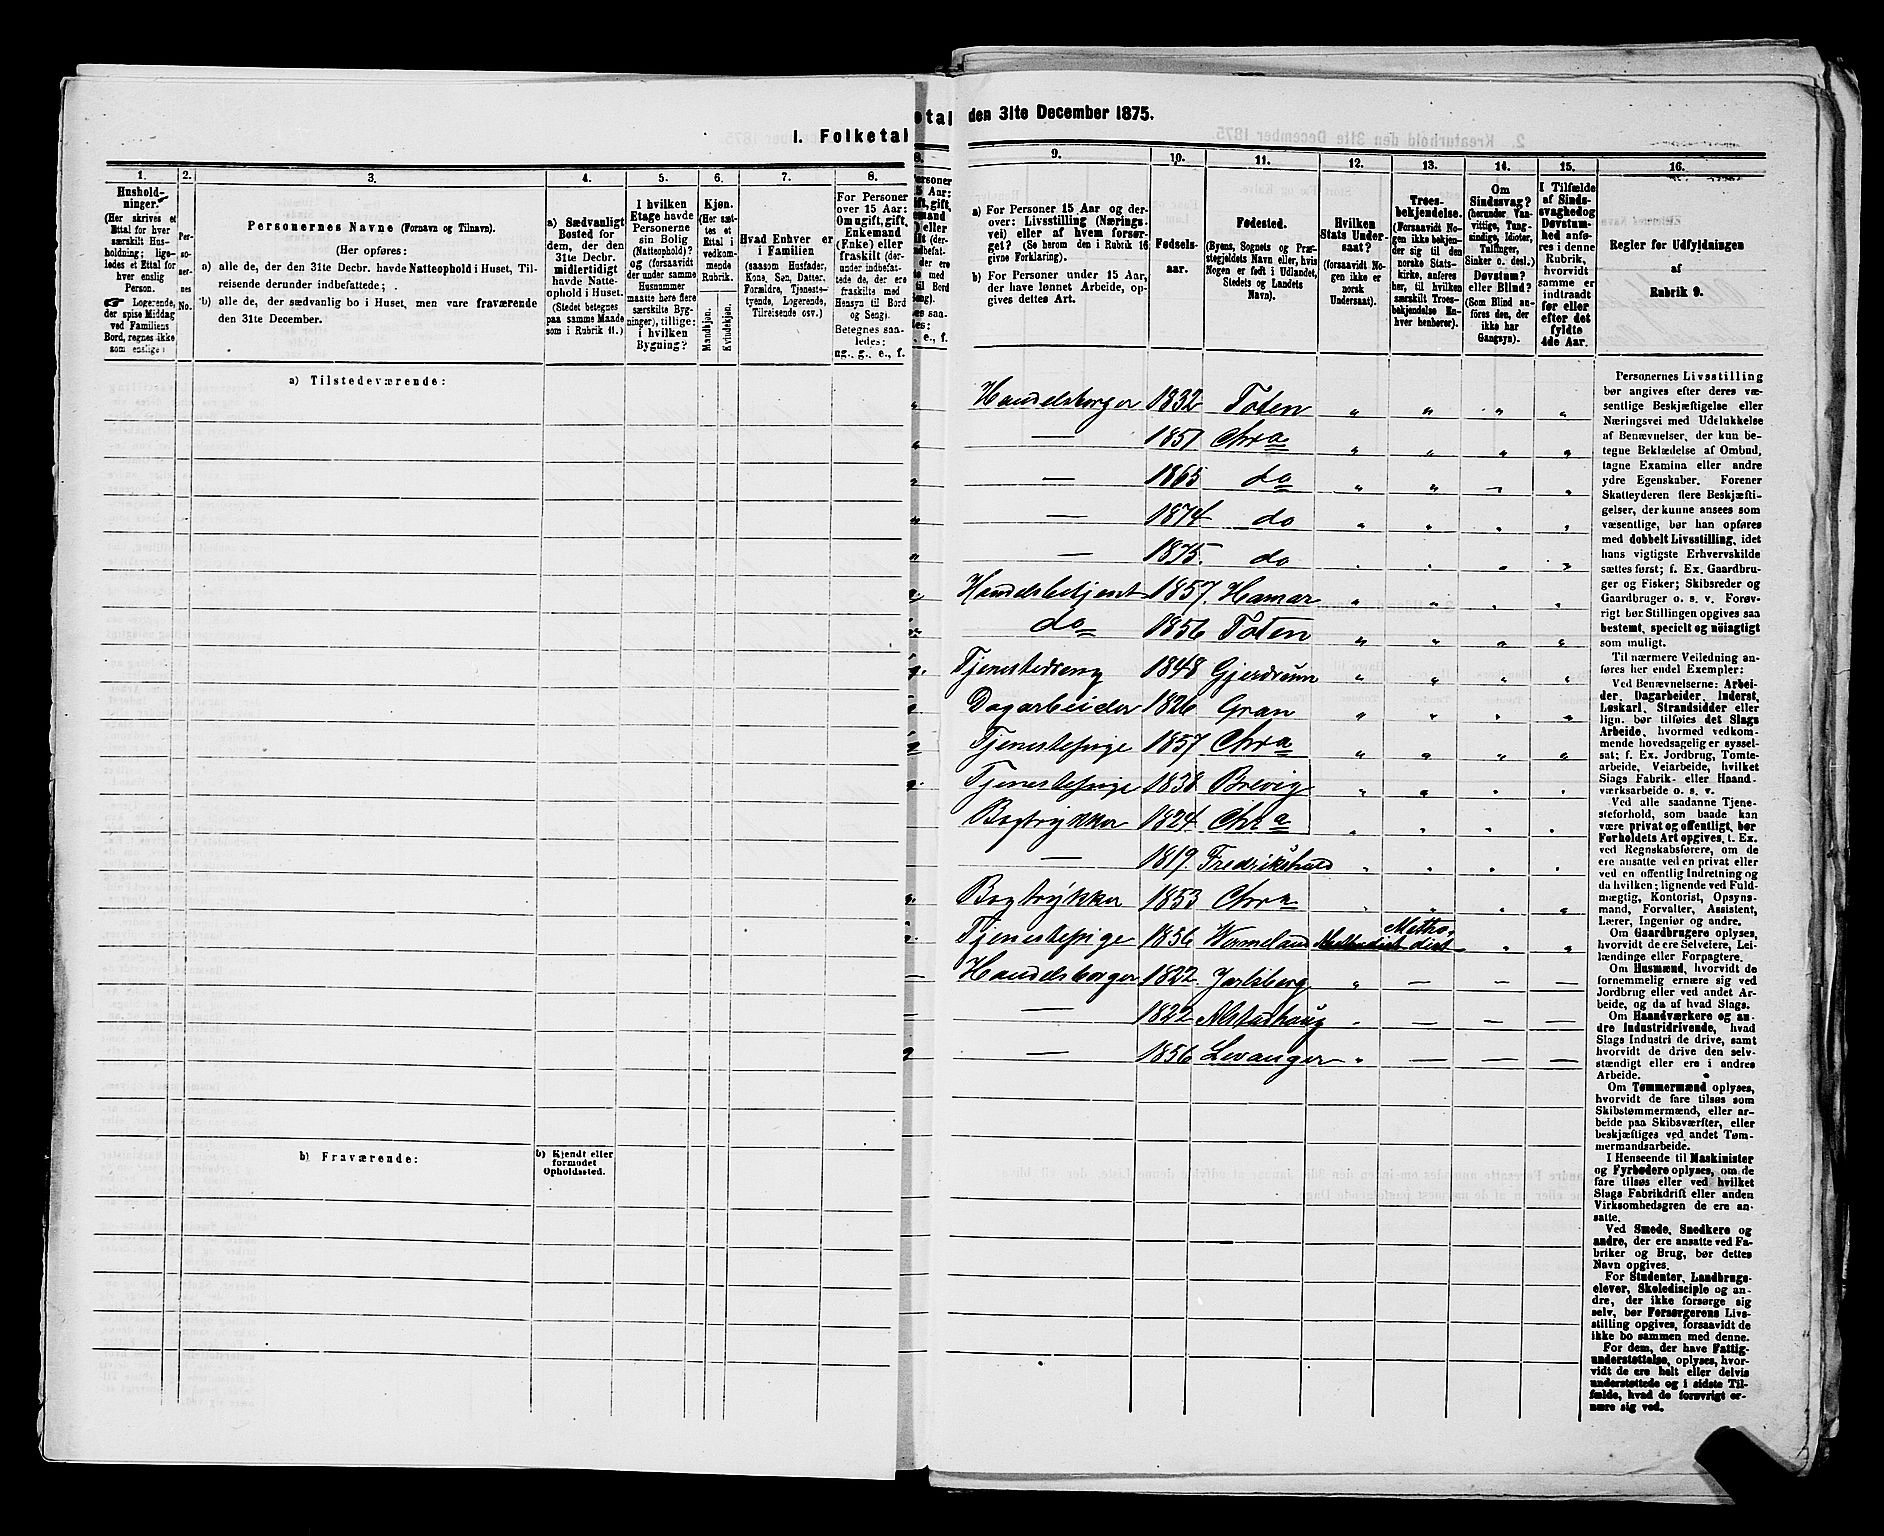 I. Folketal
etal
den 31te December 1875.
1.
Hushold-
ninger.
(Her skrives et
Ettal for hver
særskilt Hus-
holdning; lige-
ledes et Ettal for
hver enslig
Person.
☞ Logerende,
der spise Middag
ved Familiens
Bord, regnes ikke
som enslige.)
2.
Per-
so-
ner-
nes
No.
3.
Personernes Navne (Fornavn og Tilnavn).
(Her opføres:
a) alle de, der den 31te Decbr. havde Natteophold i Huset, Til-
reisende derunder indbefattede;
b) alle de, der sædvanlig bo i Huset, men vare fraværende
den 31te December.
4.
a) Sædvanligt
Bosted for
dem, der den
31te Decbr.
midlertidigt
havde Natte-
ophold i Huset.
(Stedet betegnes
paa samme Maade
som i Rubrik 11.)
5.
I hvilken
Etage havde
Personerne
sin Bolig
(Natteophold)?
og (forsaavidt
der under samme
Husnummer
maatte høre flere
særskilte Byg-
ninger), tillige:
i hvilken
Bygning?
6.
Kjøn.
(Her sæt-
tes et
Ettal i
vedkom-
mende
Rubrik.
Mandkjøn.
Kvindekjøn.
7.
Hvad Enhver er
i Familien
(saasom Husfader,
Kone, Søn, Datter,
Forældre, Tjeneste-
tyende, Logerende,
Tilreisende osv.)
8.
For Personer
over 15 Aar:
Om ugift, gift,
Enkemand
(Enke) eller
fraskilt (der-
under indbefat-
tede de, der ere
fraskilte med
Hensyn til Bord
og Seng).
Betegnes saa-
ledes:
ug., g., e., f.
a) Tilstedeværende:
b) Fraværende:
b) Kjendt eller
formodet
Opholdssted.
9.
a) For Personer 15 Aar og der-
over: Livsstilling (Nærings-
vei) eller af hvem forsør-
get? (Se herom den i Rubrik 16
givne Forklaring).
b) For Personer under 15 Aar,
der have lønnet Arbeide, op-
gives dettes Art.
10.
Fødsels-
aar.
11.
Fødested.
(Byens, Sognets og Præ-
stegjeldets Navn eller, hvis
Nogen er født i Udlandet,
Stedets og Landets
Navn).
12.
Hvilken
Stats Under-
saat?
(forsaavidt No-
gen ikke er
norsk
Undersaat).
13.
Troes-
bekjendelse.
(Forsaavidt No-
gen ikke bekjen-
der sig til den
norske Stats-
kirke, anføres
her, til hvilken
særskilt Troes-
bekjendelse En-
hver henhører).
14.
Om
Sindssvag?
(herunder Van-
vittige, Tung-
sindige, Idioter,
Tullinger,
Sinker o. desl.)
Døvstum?
eller Blind?
(Som Blind an-
føres den, der
ikke har
Gangsyn).
15.
I Tilfælde
af Sinds-
svaghed og
Døvstum-
hed anfø-
res i denne
Rubrik,
hvorvidt
samme er
indtraadt
før eller
efter det
fyldte
4de Aar.
16.
Regler for Udfyldningen
af
Rubrik 9.
Handelsborger 1832 Toten " " " "
— 1851 Chra " " " "
— 1865 do " " " "
— 1874 do " " " "
— 1875. do " " " "
Handelsbetjent 1857. Hamar " " " "
do 1856 Toten " " " "
Tjenestedreng 1848 Gjerdrum " " " "
Dagarbeider 1826 Gran " " " "
Tjenestepige 1857 Chra " " " "
Tjenestepige 1838 Brevig " " " "
Bogtrykker 1824 Chra " " " "
— 1819. Fredrikshald " " " "
Bogtrykker 1853 Chra " " " "
Tjenestepige 1856 Wermeland Methodist Methodist " "
Handelsborger 1822 Jarlsberg " — — —
— 1822 Alstahaug " — — —
— 1856 Levanger " — — —
Personernes Livsstilling
bør angives efter deres væ-
sentlige Beskjæftigelse eller
Næringsvei med Udelukkelse
af Benævnelser, der kun be-
tegne Beklædelse af Ombud,
tagne Examina eller andre
ydre Egenskaber. Forener
Skatteyderen flere Beskjæfti-
gelser, der kunne ansees som
væsentlige, bør han opføres
med dobbelt Livsstilling, idet
hans vigtigste Erhvervskilde
sættes først; f. Ex. Gaardbru-
ger og Fisker; Skibsreder og
Gaardbruger o. s. v. Forøv-
rigt bør Stillingen opgives saa
bestemt, specielt og nøiagtigt
som muligt.
Til nærmere Veiledning an-
føres her endel Exempler:
Ved Benævnelserne: Arbei-
der, Dagarbeider, Inderst,
Løskarl, Strandsidder eller
lign. bør tilføies det Slags
Arbeide, hvormed vedkom-
mende hovedsagelig er syssel-
sat; f. Ex. Jordbrug, Tomte-
arbeide, Veiarbeide, hvilket
Slags Fabrik- eller Haand-
værksarbeide o. s. v.
Ved alle saadanne Tjene-
steforhold, som baade kan
være privat og offentligt, bør
Forholdets Art opgives, t. Ex.
ved Regnskabsførere, om de
ere ansatte ved en privat eller
ved en offentlig Indretning og
da hvilken; lignende ved Fuld-
mægtig, Kontorist, Opsyns-
mand, Forvalter, Assistent,
Lærer, Ingeniør og andre.
Om Gaardbrugere oplyses,
hvorvidt de ere Selveiere, Lei-
lændinge eller Forpagtere.
Om Husmænd, hvorvidt de
fornemmelig ernære sig ved
Jordbrug eller ved andet Ar-
beide, og da af hvad Slags.
Om Haandværkere og an-
dre Industridrivende, hvad
Slags Industri de drive, samt
hvorvidt de drive den selv-
stændigt eller ere i andres
Arbeide.
Om Tømmermænd oplyses,
hvorvidt de fare tilsøs som
Skibstømmermænd, eller ar-
beide paa Skibsværfter, eller
beskjæftiges ved andet Tøm-
mermandsarbeide.
I Henseende til Maskinister
og Fyrbødere oplyses, om de
fare tilsøs eller ved hvilket
Slags Fabrikdrift eller anden
Virksomhedsgren de ere an-
satte.
Ved Smede, Snedkere og
andre, der ere ansatte ved Fa-
briker og Brug, bør dettes
Navn opgives.
For Studenter, Landbrugs-
elever, Skoledisciple og an-
dre, der ikke forsørge sig
selv, bør Forsørgerens Livs-
stilling opgives, forsaavidt de
ikke bo sammen med denne.
For dem, der have Fattig-
understøttelse, oplyses, hvor-
vidt de ere helt eller delvis
understøttede og i sidste Til-
fælde, hvad de forøvrigt er-
nære sig ved.